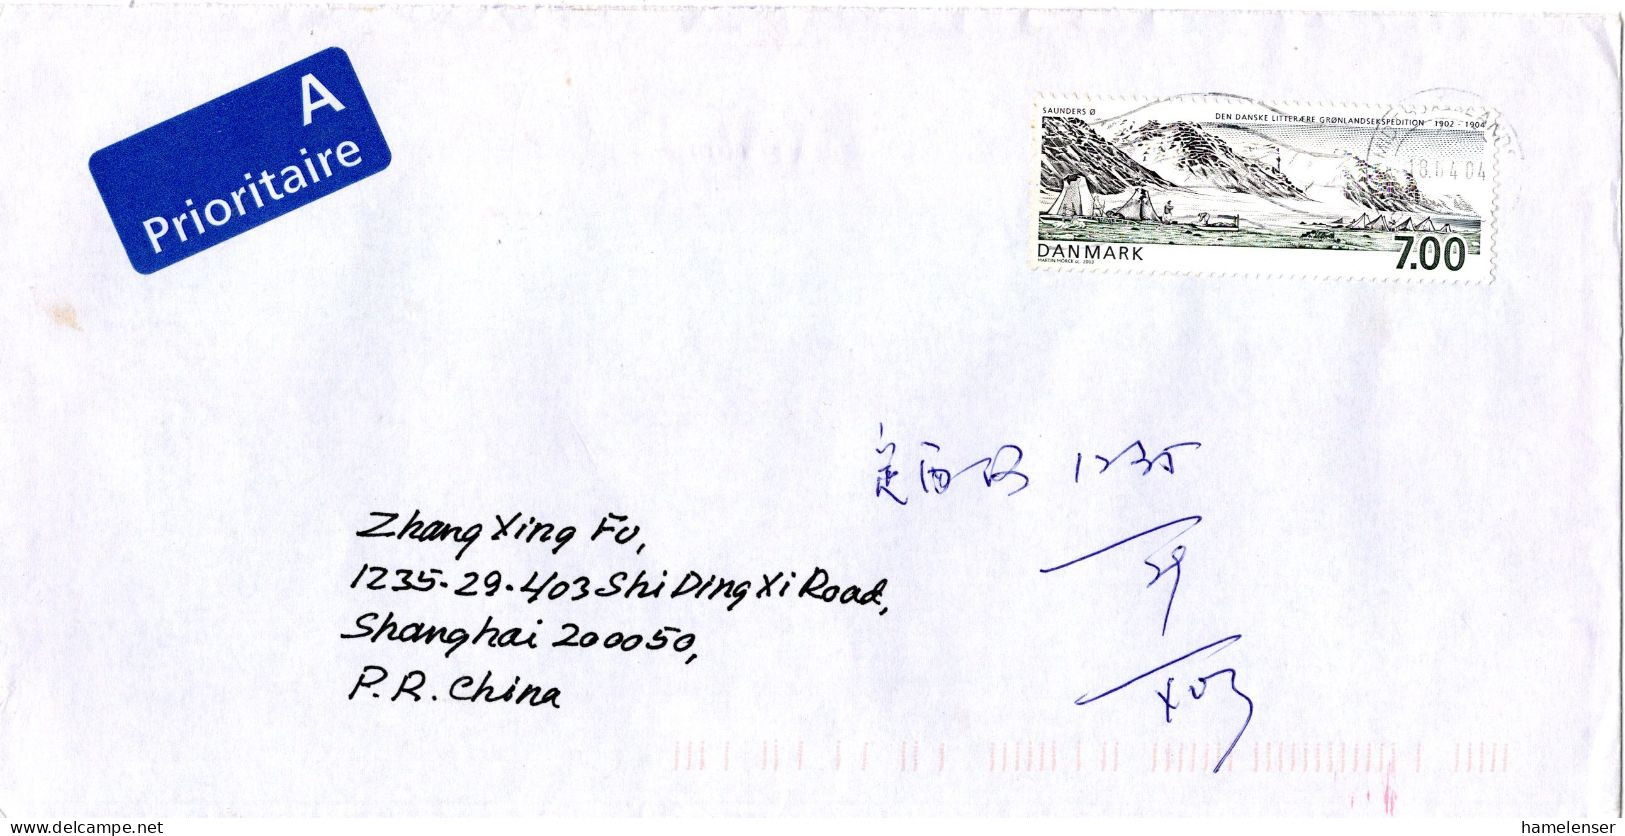 A
Prioritaire
SAUNDERS Ø
DEN DANSKE LITTERÆRE GRØNLANDSEKSPEDITION 1902 - 1904
18.04.04
DANMARK
7.00
MARTIN MÖRCK sc. 2003
定西路 1235
Zhang Xing Fu,
1235-29-403 Shi Ding Xi Road,
Shanghai 200050,
P.R. China
www.delcampe.net
hamelenser